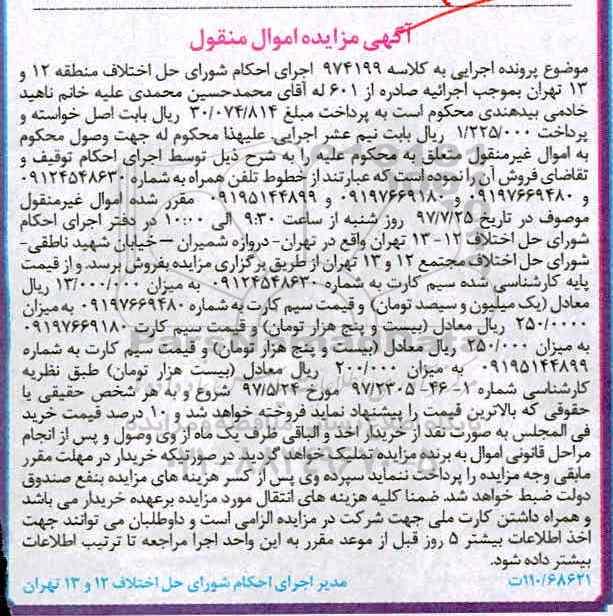 آگهی مزایده اموال منقول
موضوع پرونده اجرایی به کلاسه ۹۷۴۱۹۹ اجرای احکام شورای حل اختلاف منطقه ۱۲ و
۱۳ تهران بموجب اجرائیه صادره از ۶۰۱ له آقای محمدحسین محمدی علیه خانم ناهید
خادمی بیدهندی محکوم است به پرداخت مبلغ ۳۰/۰۷۴/۸۱۴ ریال بابت اصل خواسته و
پرداخت ۱/۲۲۵/۰۰۰ ریال بابت نیم عشر اجرایی. علیهذا محکوم له جهت وصول محکوم
به اموال غیرمنقول متعلق به محکوم علیه را به شرح ذیل توسط اجرای احکام توقیف و
تقاضای فروش آن را نموده است که عبارتند از خطوط تلفن همراه به شماره ۰۹۱۲۴۵۴۸۶۳۰
و ۰۹۱۹۷۶۶۹۴۸۰ و ۰۹۱۹۷۶۶۹۱۸۰ و ۰۹۱۹۵۱۴۴۸۹۹ مقرر شده اموال غیرمنقول
موصوف در تاریخ ۹۷/۷/۲۵ روز شنبه از ساعت ۹:۳۰ الی ۱۰:۰۰ در دفتر اجرای احکام
شورای حل اختلاف ۱۲-۱۳ تهران واقع در تهران- دروازه شمیران – خیابان شهید ناطقی-
شورای حل اختلاف مجتمع ۱۲ و ۱۳ تهران از طریق برگزاری مزایده بفروش برسد. و از قیمت
پایه کارشناسی شده سیم کارت به شماره ۰۹۱۲۴۵۴۸۶۳۰ به میزان ۱۳/۰۰۰/۰۰۰ ریال
معادل (یک میلیون و سیصد تومان) و قیمت سیم کارت به شماره ۰۹۱۹۷۶۶۹۴۸۰ به میزان
۲۵۰/۰۰۰۰ ریال معادل (بیست و پنج هزار تومان) و قیمت سیم کارت ۰۹۱۹۷۶۶۹۱۸۰
به میزان ۲۵۰/۰۰۰ ریال معادل (بیست و پنج هزار تومان) و قیمت سیم کارت به شماره
۰۹۱۹۵۱۴۴۸۹۹ به میزان ۲۰۰/۰۰۰ ریال معادل (بیست هزار تومان) طبق نظریه
کارشناسی شماره ۱-۴۶-۹۷/۲۳۰۵ مورخ ۹۷/۵/۲۴ شروع و به هر شخص حقیقی یا
حقوقی که بالاترین قیمت را پیشنهاد نماید فروخته خواهد شد و ۱۰ درصد قیمت خرید
فی المجلس به صورت نقد از خریدار اخذ و الباقی ظرف یک ماه از وی وصول و پس از انجام
مراحل قانونی اموال به برنده مزایده تملیک خواهد گردید. در صورتیکه خریدار در مهلت مقرر
مابقی وجه مزایده را پرداخت ننماید سپرده وی پس از کسر هزینه های مزایده بنفع صندوق
دولت ضبط خواهد شد. ضمنا کلیه هزینه های انتقال مورد مزایده برعهده خریدار می باشد
و همراه داشتن کارت ملی جهت شرکت در مزایده الزامی است و داوطلبان می توانند جهت
اخذ اطلاعات بیشتر ۵ روز قبل از موعد مقرر به این واحد اجرا مراجعه تا ترتیب اطلاعات
بیشتر داده شود.
مدیر اجرای احکام شورای حل اختلاف ۱۲ و ۱۳ تهران
۱۱۰/۶۸۶۲۱ت